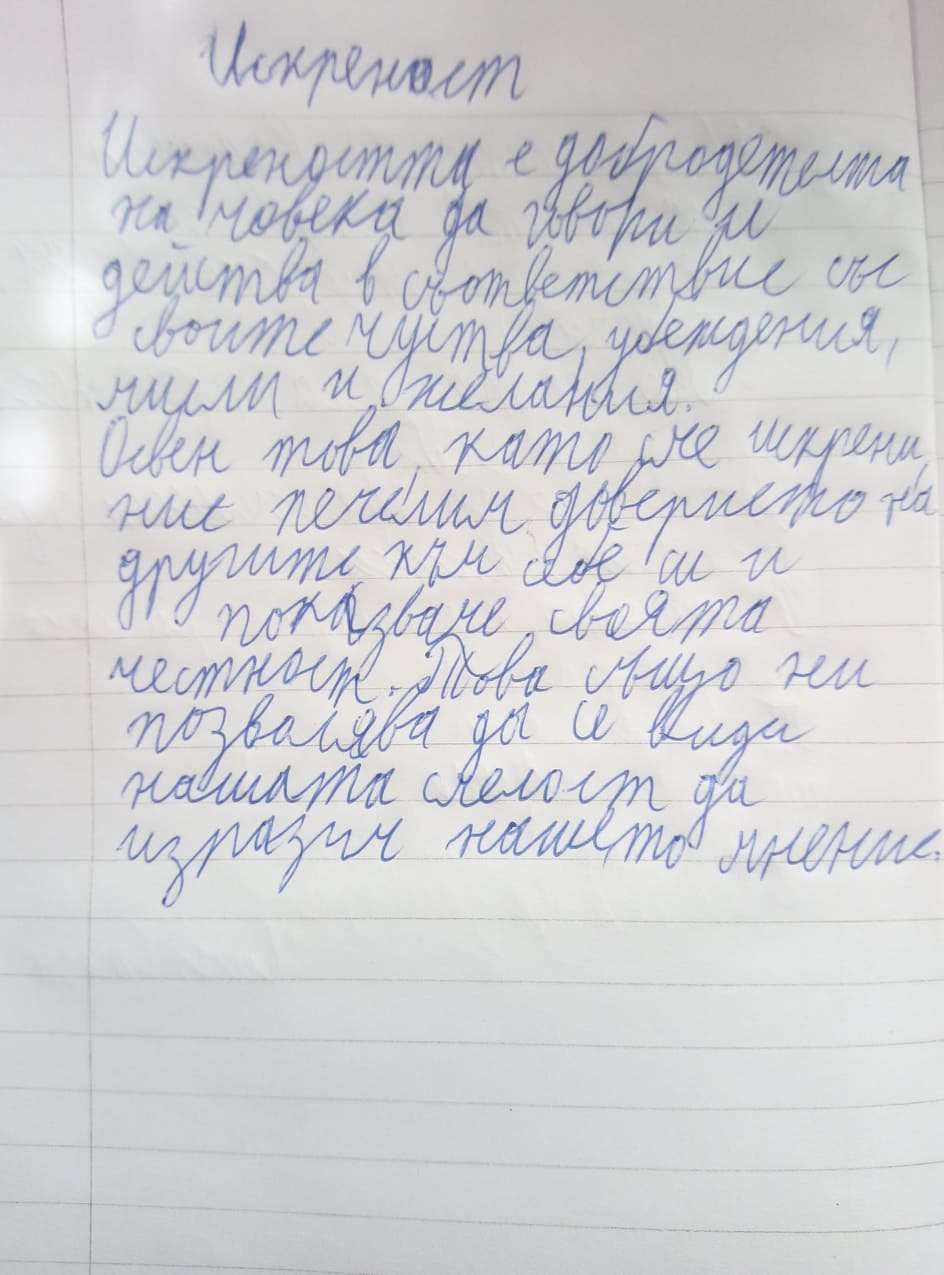 Искреност
Искреността е добродетелта
на човека да говори и
действа в съответствие със
своите чуства, убеждения,
мисли и желания.
Освен това, като сме искрени,
ние печелим доверието на
другите към себе си и
показваме своята
честност. Това също ни
позволява да се види
нашата смелост да
изразим нашето мнение.